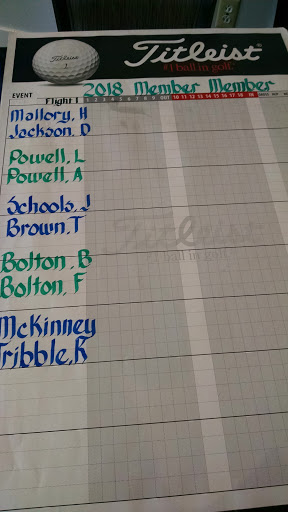 Titleist
Titleist™
#1 ball in golf.™
EVENT 2018 Member Member
Flight 1 1 2 3 4 5 6 7 8 9 OUT 10 11 12 13 14 15 16 17 18 IN
Mallory, H
Jackson, D
Powell, L
Powell, A
Schools, J
Brown, T
Titleist
#1 ball in golf.
Bolton, B
Bolton, F
McKinney
Tribble, R